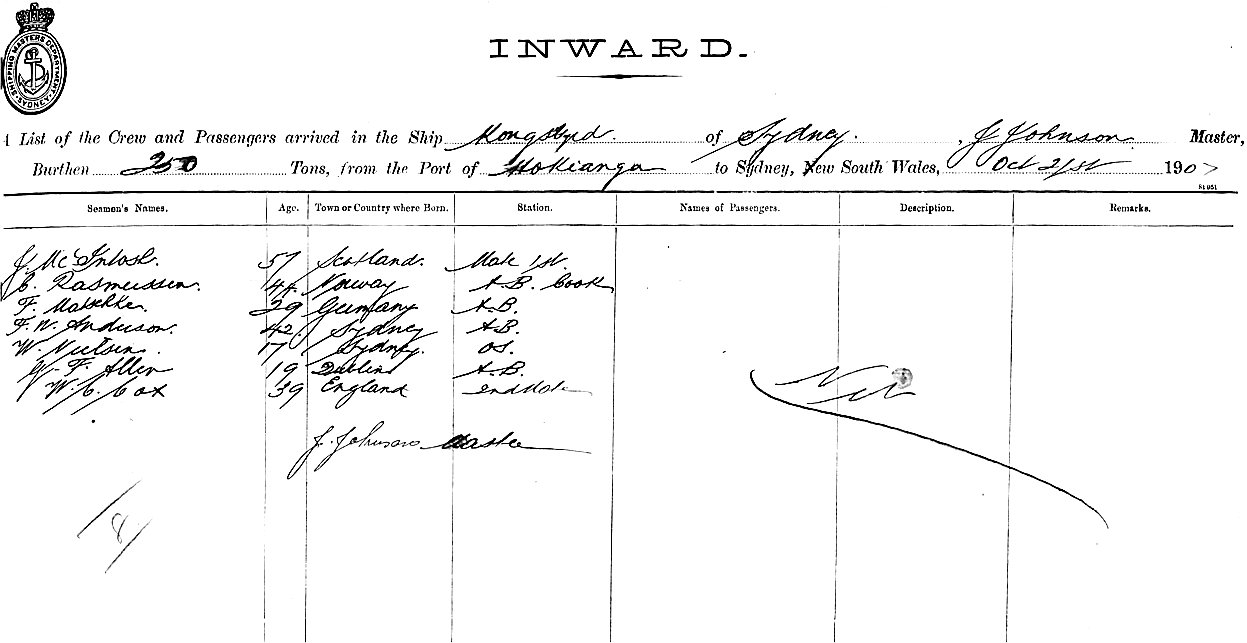 SHIPPING MASTERS DEPARTMENT. SYDNEY.
INWARD.
A List of the Crew and Passengers arrived in the Ship of Sydney. , J Johnson Master,
Burthen 250 Tons, from the Port of Hokianga to Sydney, New South Wales, Oct 21st 1907
Seamen's Names. Age. Town or Country where Born. Station. Names of Passengers. Description. Remarks.
J. McIntosh. 57 Scotland. Mate 1st.
C. Rasmussen. 44 Norway A.B. Cook
F. Maschke. 29 Germany A.B.
F. W. Anderson. 42 Sydney A.B.
W. Neilsen. 17 Sydney. OS.
W. F. Allen 19 Dublin A.B.
W. C. Cox 39 England 2nd Mate
Nil
J. Johnson Master
/8/